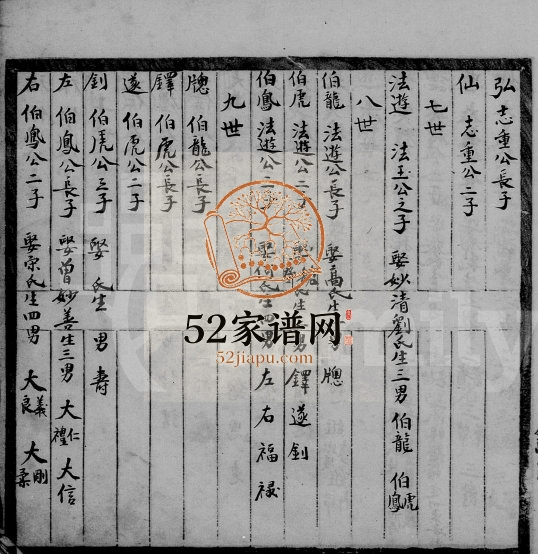 弘 志重公長子
仙 志重公二子
七世
法遊 法玉公之子 娶妙清劉氏生三男 伯龍 伯虎 伯鳳
八世
伯龍 法遊公長子 娶高氏生 男 聰
伯虎 法遊公二子 娶 氏生 男 鐸 遂 釗
伯鳳 法遊公三子 娶何氏生四男 左 右 福 祿
九世
聰 伯龍公長子
鐸 伯虎公長子
遂 伯虎公二子
釗 伯虎公三子 娶 氏生 男 壽
左 伯鳳公長子 娶曾妙善生三男 大仁 禮 大信
右 伯鳳公二子 娶宗氏生四男 大義 良 大剛 柔
52家谱网
52jiapu.com